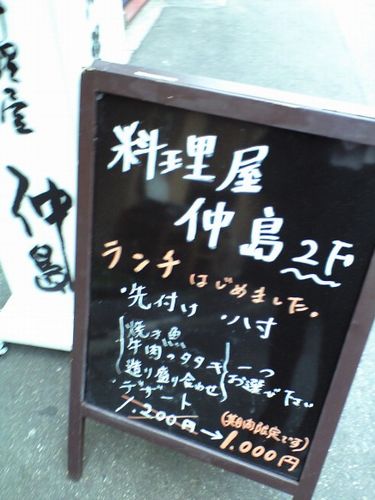 料理屋
仲島
料理屋
仲島 2F
ランチ はじめました。
・先付け ・八寸
焼き魚
牛肉のタタキ
造り盛り合わせ
一つ
お選び下さい
・デザート
1.200円→1.000円
(期間限定です)